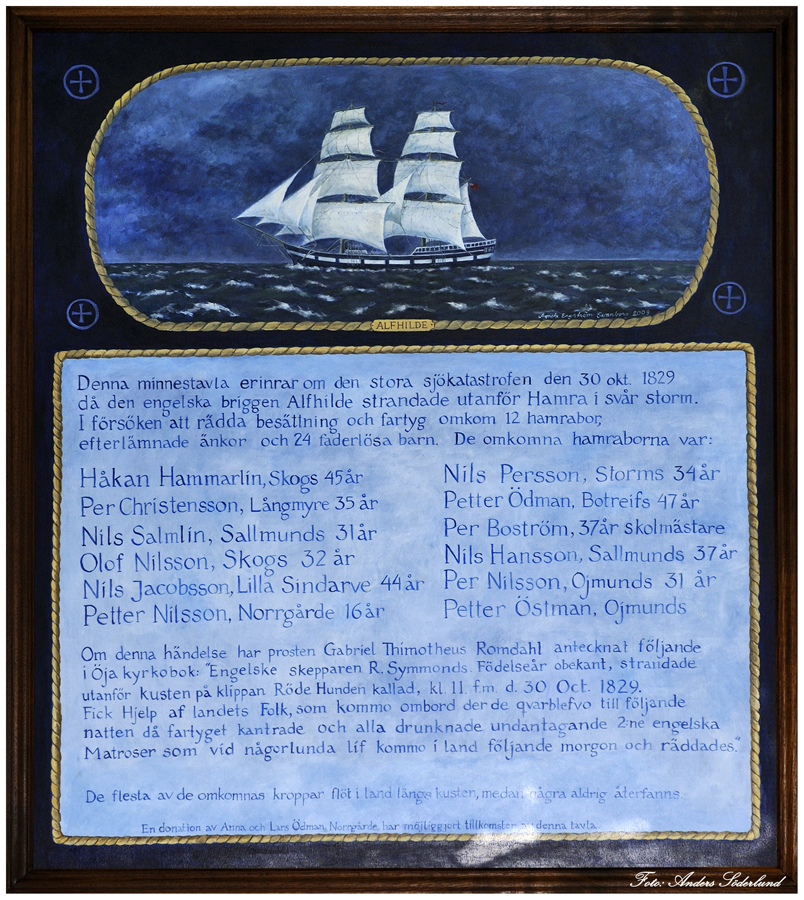 ALFHILDE
2009
Denna minnestavla erinrar om den stora sjökatastrofen den 30 okt. 1829
då den engelska briggen Alfhilde strandade utanför Hamra i svår storm.
I försöken att rädda besättning och fartyg omkom 12 hamrabor,
efterlämnade änkor och 24 faderlösa barn. De omkomna hamraborna var:
Håkan Hammarlin, Skogs 45 år
Per Christensson, Långmyre 35 år
Nils Salmlin, Sallmunds 31 år
Olof Nilsson, Skogs 32 år
Nils Jacobsson, Lilla Sindarve 44 år
Petter Nilsson, Norrgårde 16 år
Nils Persson, Storms 34 år
Petter Ödman, Botreifs 47 år
Per Boström, 37 år skolmästare
Nils Hansson, Sallmunds 37 år
Per Nilsson, Ojmunds 31 år
Petter Östman, Ojmunds
Om denna händelse har prosten Gabriel Thimotheus Romdahl antecknat följande
i Öja kyrkobok: "Engelske skepparen R. Symmonds. Födelseår obekant, strandade
utanför kusten på klippan Röde Hunden kallad, kl. 11 f.m. d. 30 Oct. 1829.
Fick Hjelp af landets Folk, som kommo ombord der de qvarblefvo till följande
natten då fartyget kantrade och alla drunknade undantagande 2:ne engelska
Matroser som vid någorlunda lif kommo i land följande morgon och räddades."
De flesta av de omkomnas kroppar flöt i land längs kusten, medan några aldrig återfanns.
En donation av Anna och Lars Ödman, Norrgårde, har möjliggjort tillkomsten av denna tavla.
Foto: Anders Söderlund